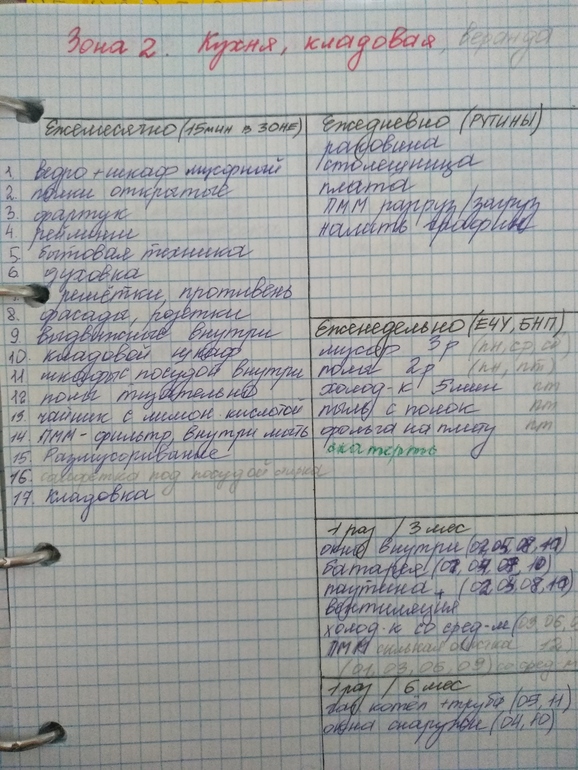 Зона 2. Кухня, кладовая, веранда
Ежемесячно (15 мин в зоне)
1. ведро + шкаф мусорный
2. полки открытые
3. фартук
4. рейлинги
5. бытовая техника
6. духовка
решётки, противень
8. фасады, розетки
9. выдвижные внутри
10. кладовой шкаф
11. шкафы с посудой внутри
12. полы тщательно
13. чайник с лимон. кислотой
14. ПММ - фильтр, внутри мыть
15. Размусоривание
16. салфетка под посудой
17. Кладовка
Ежедневно (рутины)
раковина
столешница
плита
ПММ разгруз/загруз
налить графин
Еженедельно (ЕЧУ, БНП)
мусор 3р (пн, ср, сб)
полы 2р (пн, пт)
холод-к 5 мин пт
пыль с полок пт
фольга на плиту пт
скатерть
1 раз / 3 мес
окно внутри (02, 05, 08, 11)
батарея (01, 04, 07, 10)
паутина (02, 05, 08, 11)
вентиляция
холод-к со сред-м (03, 06,
ПММ 12)
(01, 03, 06, 09) со сред-м
1 раз / 6 мес
газ. котёл + труба (05, 11)
окна снаружи (04, 10)